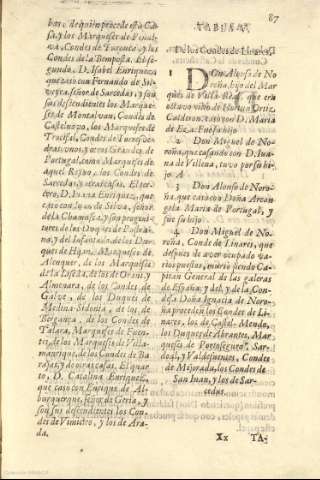 87
bor, de quien procede esta Ca-
sa, y los Marqueses de Penalva,
Condes de Tarouca, y los
Condes de la Bemposta. El se-
gundo, D. Isabel Enriquez
que casò con Fernando de Sil-
veyra, señor de Sarcedas, y son
sus descendientes los Marque-
ses de Montalvan, Condes de
Castelnovo, los Marqueses de
Trocifal, Condes de Torres
Portugal, como Marqueses de
aquel Reyno, los Condes de
Sarcedas, y otras casas. El ter-
cero, D. Juana Enriquez, que
casò con Luis de Silva, señor
de la Chamusca, y son progeni-
tores de los Duques de Pastra-
na, y del Infantado, de los Du-
ques de Hijar, Marqueses de
Alenquer, de los Marqueses
de la Eliseda, de los de Orani, y
Almenara, de los Condes de
Galve, de los Duques de
Medina-Sidonia, de los de
Berganza, de los Condes de
Talara, Marqueses de Fuen-
tes, de los Marqueses de Villa-
manrique, de los Condes de Ba-
rajas, y de otras casas. El quar-
to, D. Catalina Enriquez,
que casò con Enrique de Al-
buquerque, señor de
sus descendientes los Con-
des de Vimioso, y los de Ara-
da.
De los Condes de Linares.
1 Don Alonso de No-
roña, hijo del Mar-
quès de Villa-Real, que era
octavo nieto de Hortun Ortiz
Calderon, casò con D. Maria
de Eza. Fue su hijo
2 Don Miguel de No-
roña, que casando con D. Jua-
na de Villena, tuvo por su hi-
jo. A
3 Don Alonso de Noro-
ña, que casò con Doña Arcan-
gela Maria de Portugal, y
fue su hijo
4 Don Miguel de No-
roña, Conde de Linares, que
despues de aver ocupado va-
rios puestos, muriò siendo Ca-
pitan General de las galeras
de España; y del, y de la Con-
desa Doña Ignacia de Noro-
ña proceden los Condes de Li-
nares, los de Castel-Mendo,
los Duques de Abrantes, Mar-
queses de Portoseguro, Sar-
doal, y Valdefuentes, Condes
de Mejorada, los Condes de
San Juan, y los de Sar-
cedas.
Xx TA-